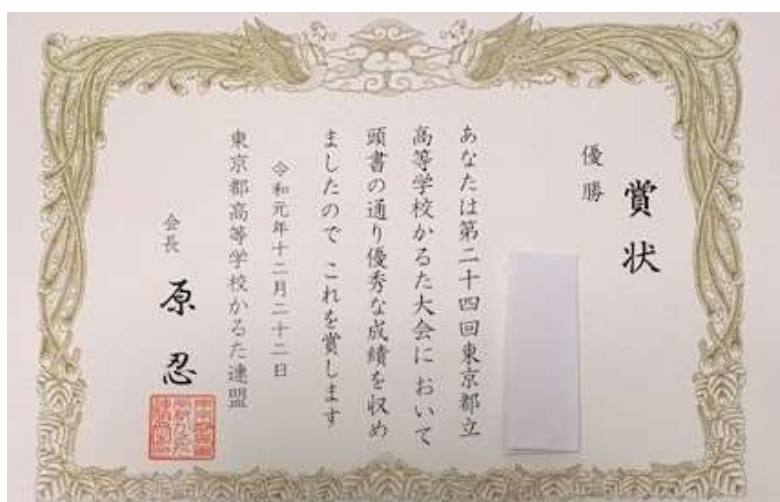 賞状
優勝
あなたは第二十四回東京都立
高等学校かるた大会において
頭書の通り優秀な成績を収め
ましたので これを賞します
令和元年十二月二十二日
東京都高等学校かるた連盟
会長 原忍